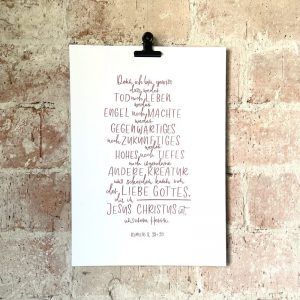 Denn ich bin gewiss,
dass weder
TOD noch LEBEN
weder
ENGEL noch MÄCHTE
weder
GEGENWÄRTIGES
noch ZUKÜNFTIGES
weder
HOHES noch TIEFES
noch irgendeine
ANDERE KREATUR
uns scheiden kann von
der LIEBE GOTTES,
die in
JESUS CHRISTUS ist,
unserem Herrn.
RÖMER 8, 38-39